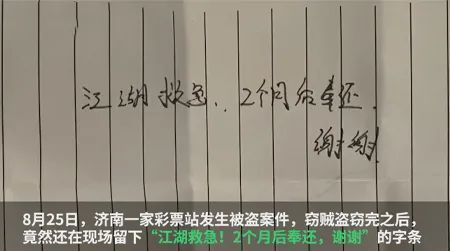 江湖救急，2个月后奉还，
谢谢
8月25日，济南一家彩票站发生被盗案件，窃贼盗窃完之后，
竟然还在现场留下“江湖救急！2个月后奉还，谢谢”的字条